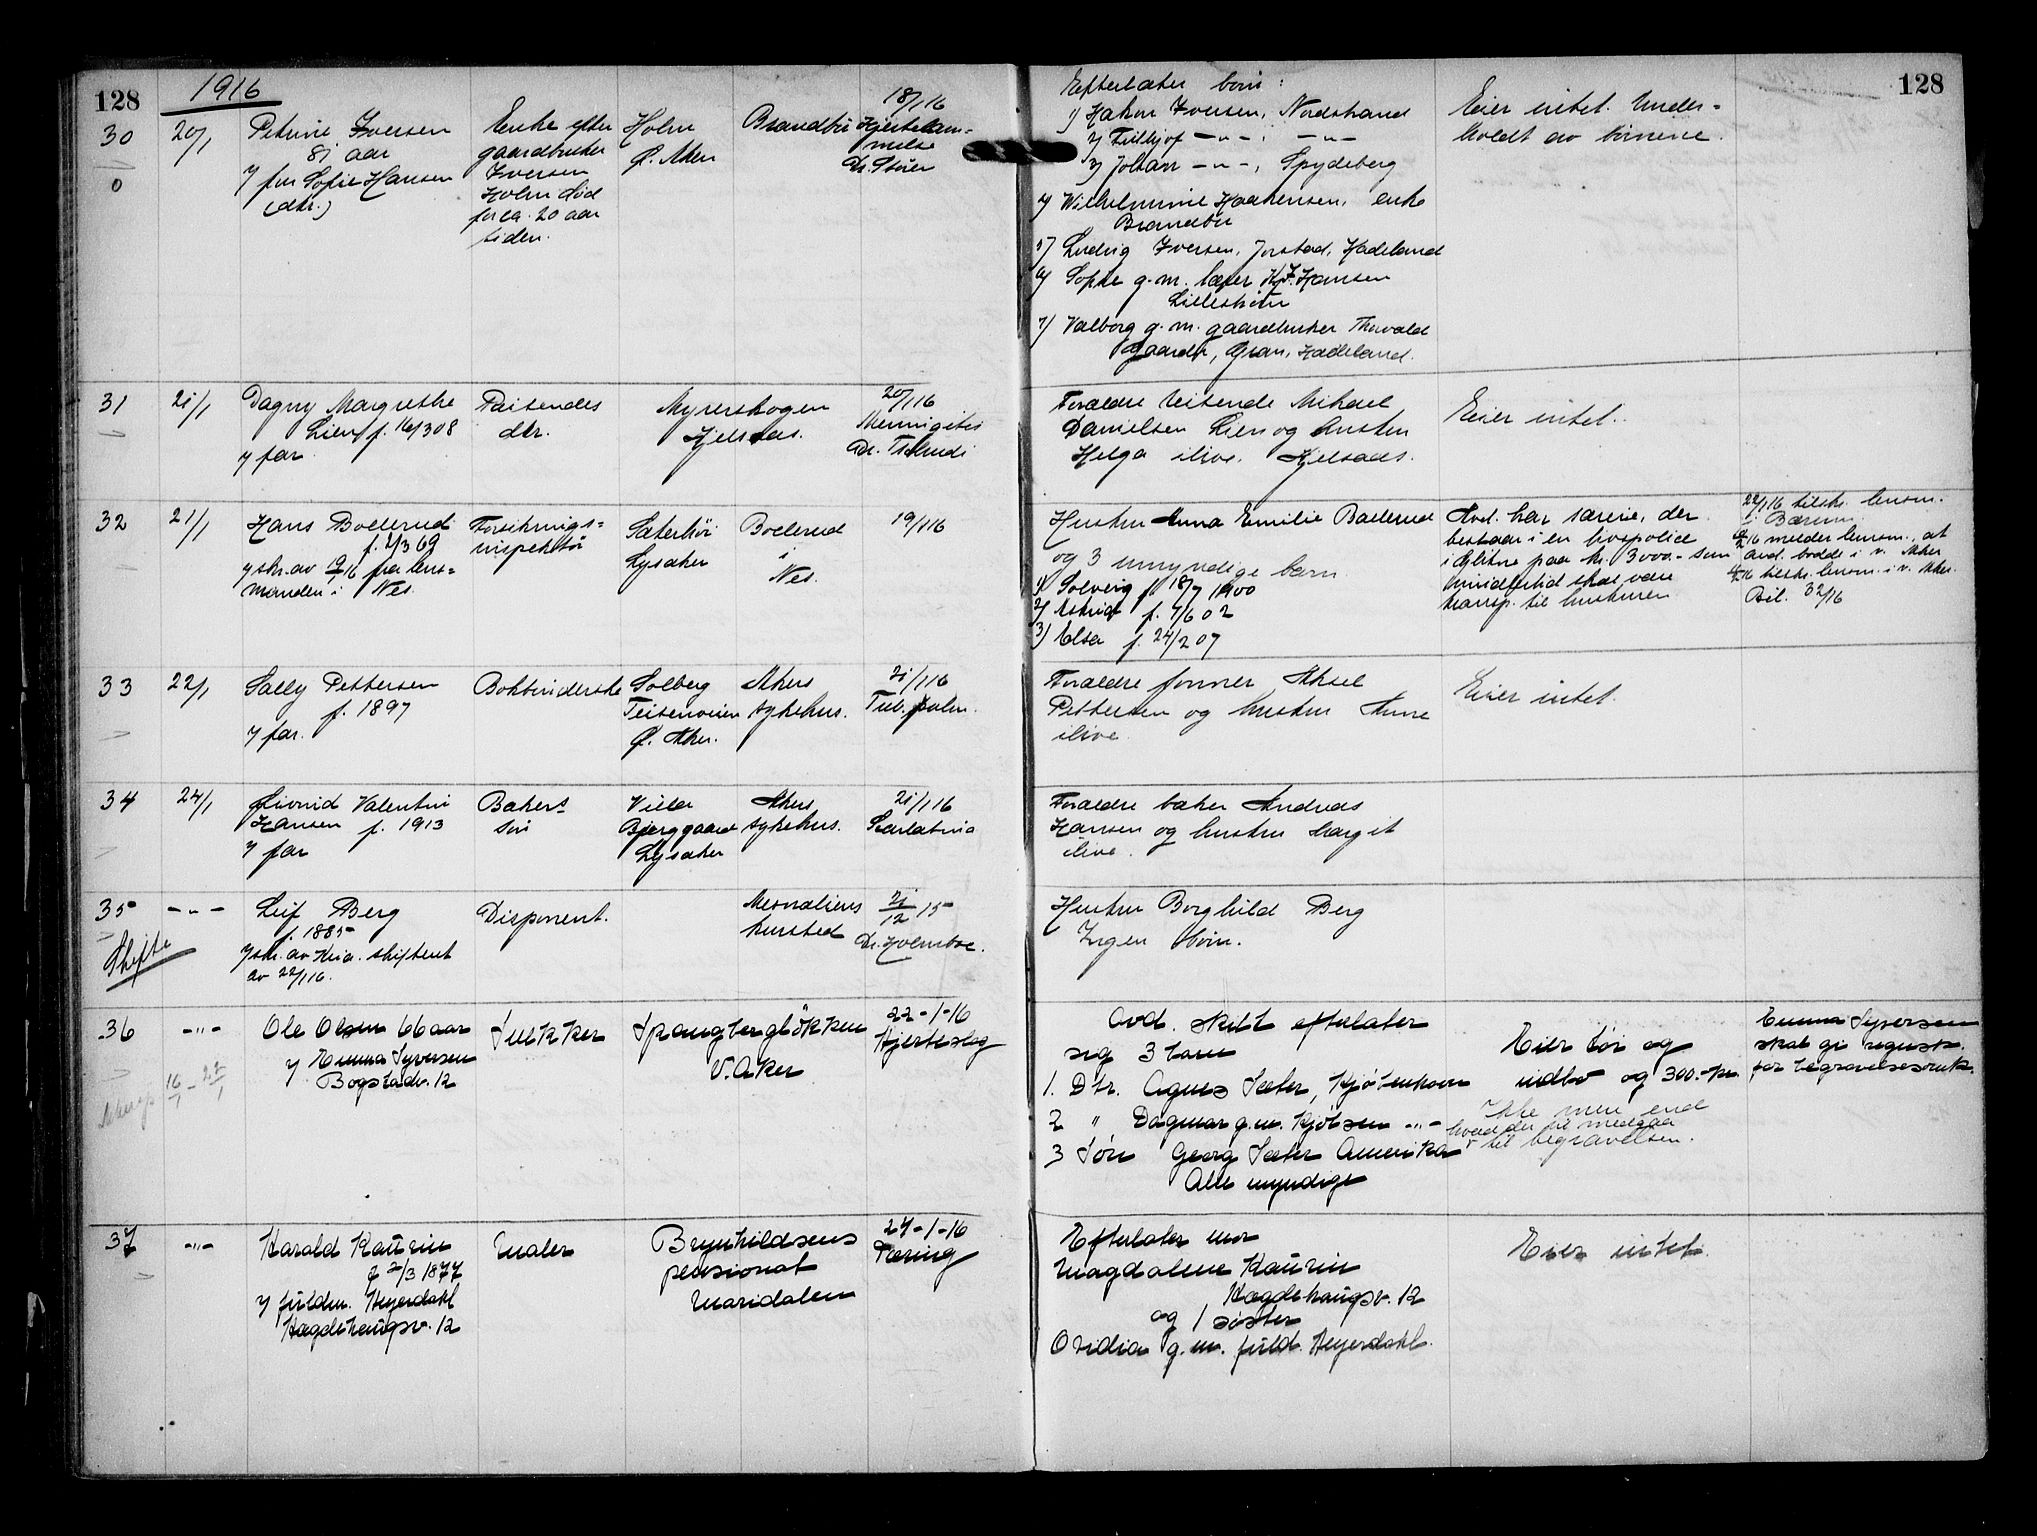 128
1916
128
30
20/1
Petrine Iversen
81 aar
v/ fru Sofie Hansen
(dtr.)
Enke efter
gaardbruker
Iversen
Holm død
for ca. 20 aar
siden.
Holm
Ø. Aker
Brandbu
18/1 16
Hjertelam-
melse
Dr. Stören
Efterlater børn:
1) Hakon Iversen, Nordstrand
2) Fritjof -"- , -"-
3) Johan -"-, Spydeberg
4) Wilhelmine Haakensen, enke
Brandbu
5) Ludvig Iversen, Jorstad, Hadeland
6) Sofie g.m. Hansen
Lillestrøm
7) Valborg g.m. gaardbruker Thorvald
Gaarder, Gran, Hadeland.
Eier intet. Under-
holdt av børnene.
0
31
21/1
Dagny Margrethe
Lien f. 16/3 08
v/ far
Reisendes
dtr.
Myrerskogen
Kjelsaas.
20/1 16
Meningitis
Dr. Tschudi
Forældre reisende Mikael
Danielsen Lien og hustru
Helga ilive. Kjelsaas.
Eier intet.
32
21/1
Hans Boelerud
f. 1/3 69
v/ skr. av fra lens-
manden i Nes.
Forsikrings-
inspektør
Sæterhöi
Lysaker
Boelerud
i
Nes.
19/1 16
Hustru Anna Emilie Boelerud
og 3 umyndige barn.
1) Solveig f. 18/7 1900
2) Astrid f. 7/6 02
3) Elsa f. 24/2 07
Avd. har særeie, der
bestaar i en livspolice
i Glitne paa kr. 3000.- som
imidlertid skal være
transp. til hustruen
22/1 16 tilskr. lensm.
i Bærum.
16 melder lensm., at
avd. bodde i v. Aker
16 tilskr. lensm. i v. Aker.
Bil. 32/16
33
22/1
Sally Pettersen
f. 1897
v/ far.
Bokbinderske
Solberg
Teisenveien
Ø. Aker.
Akers
sykehus.
21/1 16
Tub. pulm.
Forældre former Aksel
Pettersen og hustru Anne
ilive.
Eier intet.
34
24/1
Eivind Valentin
Hansen f. 1913
v/ far
Bakers
søn
Villa
Bjerggaard
Lysaker
Akers
sykehus.
21/1 16
Scarlatina
Forældre baker Andreas
Hansen og hustru Margit
ilive.
35
-"-
Skifte
Leif Berg
f. 1885
v/ skr. av Kria. skifteret
av 22/1 16.
Disponent.
Mesnaliens
kursted
21/12 15
Dr. Holmboe.
Hustru Borghild Berg
Ingen børn.
36
-"-
Ole Olsen 66 aar
v/ Emma Syversen
Bogstadv. 12
Snekker
Spangberglökken
V. Aker
22-1-16
Hjerteslag
Avd. skilt efterlater
sig 3 barn
1. Dtr. Agnes Sæter, Kjøbenhavn
2 " Dagmar g.m. Kjölsen -"-
3 Sön Georg Sæter Amerika
Alle myndige
Eier lör og
indbo og 300.- kr.
Ikke mer end
hvad der vil medgaa
til begravelsen.
Emma Syversen
skal gi regnsk.
for begravelsesomk.
37
-"-
Harald Kaurin
f 2/3 1877
v/ fuldm. Heyerdahl
Hægdehaugsv. 12
Maler
Brynhildsens
pensionat
Maridalen
24-1-16
Tæring
Efterlater mor
Magdalene Kaurin
Hægdehaugsv. 12
og 1 søster
Ovidia g.m. fuld. Heyerdahl.
Eier intet.